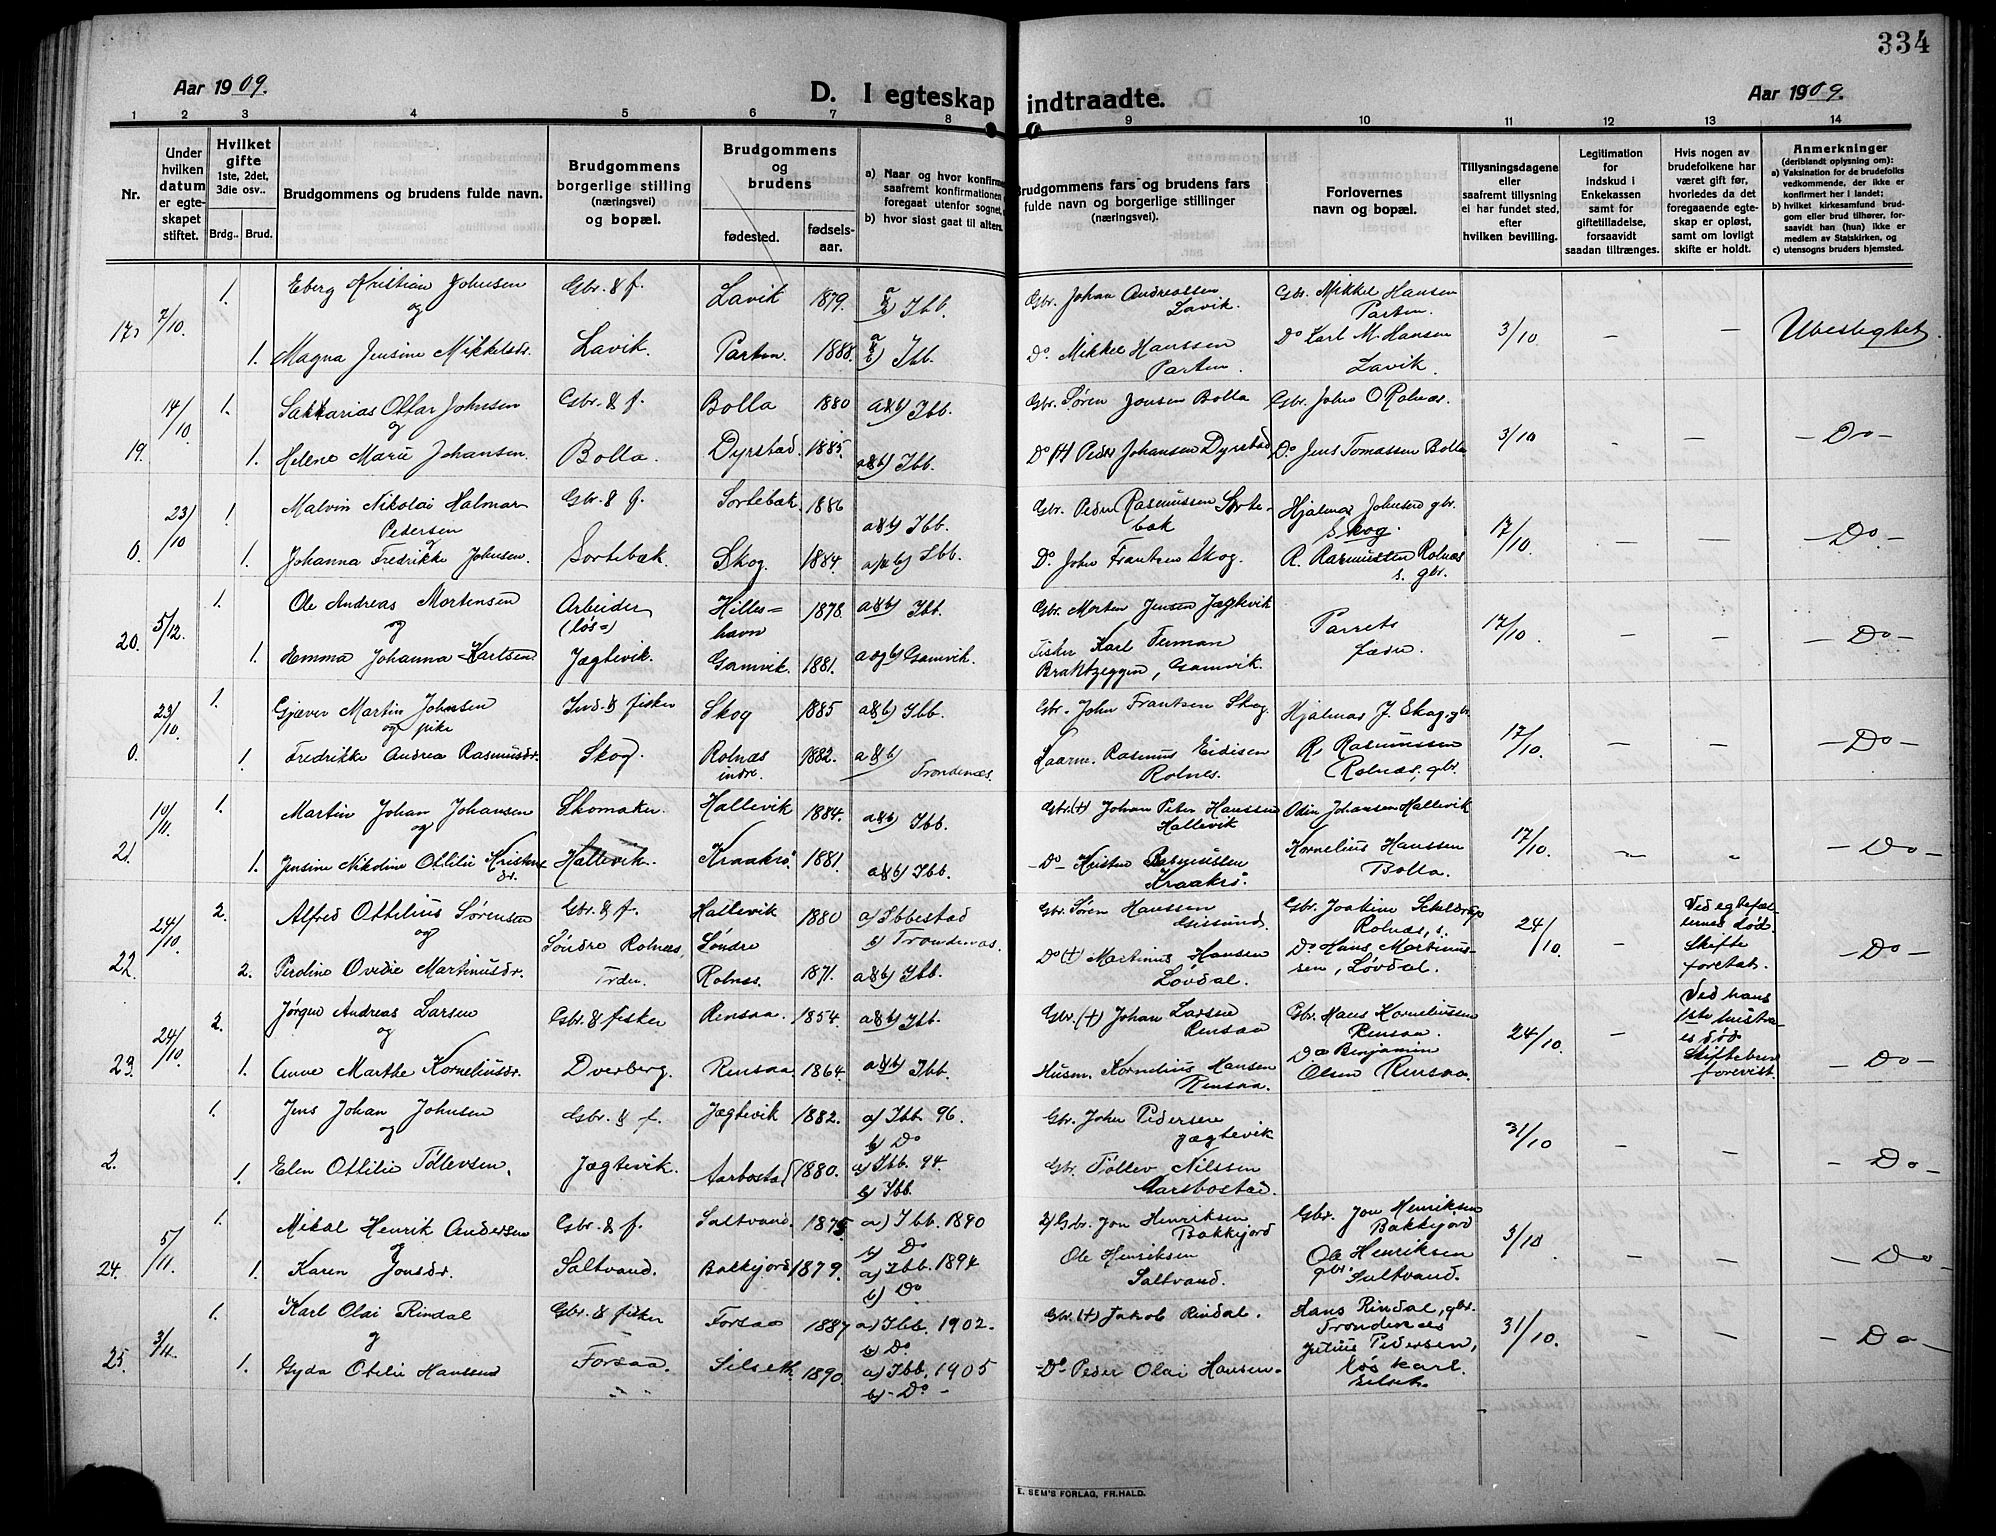 334
Aar 1909.
D. I egteskap indtraadte.
Aar 1909.
1 2 3 4 5 6 7 8 9 10 11 12 13 14
Nr.
Under
hvilken
datum
er egte-
skapet
stiftet.
Hvilket
gifte
1ste, 2det,
3die osv..
Brdg.. Brud.
Brudgommens og brudens fulde navn.
Brudgommens
borgerlige stilling
(næringsvei)
og bopæl.
Brudgommens
og
brudens
fødested.
fødsels-
aar.
a) Naar og hvor konfirm
saafremt konfirmationen
foregaat utenfor sognet,
b) hvor sidst gaat til alters.
Brudgommens fars og brudens fars
fulde navn og borgerlige stillinger
(næringsvei).
Forlovernes
navn og bopæl.
Tillysningsdagene
eller
saafremt tillysning
ei har fundet sted,
efter
hvilken bevilling.
Legitimation
for
indskud i
Enkekassen
samt for
giftetilladelse,
forsaavidt
saadan tiltrænges.
Hvis nogen av
brudefolkene har
været gift før,
hvorledes da det
foregaaende egte-
skap er opløst,
samt om lovligt
skifte er holdt.
Anmerkninger
(deriblandt oplysning om):
a) Vaksination for de brudefolks
vedkommende, der ikke er
konfirmert her i landet;
b) hvilket kirkesamfund brud-
gom eller brud tilhører, for-
saavidt han (hun) ikke er
medlem av Statskirken, og
c) utensogns bruders hjemsted.
7/10 1. Eberg Kristian Johnsen Gbr. & f. Lavik 1879. a & b) Ibb. Gbr. Johan Andreassen Lavik. Gbr. Mikkel Hansen Parten.
og
1. Magna Jensine Mikkelsdr. Lavik. Parten. 1888. a & b) Ibb. Do. Mikkel Hanssen Parten. Do Karl M. Hansen Lavik. 3/10 – – Ubeslegtet.
14/10 1. Sakkarias Ottar Johnsen Gbr. & f. Bolla 1880 a&b) Ibb. Gbr. Søren Jonsen Bolla Gbr. Johs O Rolnæs.
og
19. 1. Helene Marie Johansen. Bolla. Dyrstad. 1885. a&b) Ibb. Do (+) Peder Johansen Dyrstad, Do. Jens Tomassen Bolla 3/10 – – – Do –
23/10 1. Malvin Nikolai Halmar Gbr. & f. Sortebæk. 1886 a&b) Ibb. Gbr. Peder Rasmussen Sorte- Hjalmar Johnsen gbr.
Pedersen bæk Skog.
og
0. 1. Johanna Fredrikke Johnsen. Sortebæk. Skog. 1884. a & b) Ibb. Do. John Frantsen Skog. R. Rasmussen Rolnæs s. gbr. 17/10 – – – Do. –
5/12. 1. Ole Andreas Mortensen Arbeider Hilles= 1878. a&b) Ibb. Gbr. Morten Jensen Jægtevik Parrets
og (løs=) havn
20. 1. Emma Johanna Karlsen. Jægtevik. Gamvik. 1881. a og b) Gamvik. Fisker Karl Ferman fædre 17/10 – – – Do –
Gamvik.
23/10. 1. Gjæver Martin Johnsen Ind. & fisker Skog 1885 a&b) Ibb. Gbr. John Frantsen Skog. Hjalmar J. Skog, gbr.
og pike
0. 1. Fredrikke Andrea Rasmusdr. Skog. Rolnæs indre. 1882. a&b) Trondenæs. Rasmus Eidisen Rolnes. R. Rasmussen Rolnæs, gbr. 17/10 – – – Do –
10/11. 1. Martin Johan Johansen Skomaker. Hallevik 1884. a&b) Ibb. Gbr. (+) Johan Peter Hanssen Hallevik Odin Johansen Hallevik
og
21. 1. Jensine Nikoline Ottilie Kristens dr. Hallevik. Kraakrø 1881. a&b) Ibb. – Do – Kristen Rasmussen Kraakrø. Kornelius Hanssen Bolla. 17/10. – Do –
24/10. 2. Alfred Ottelius Sørensen Gbr. & f. Hallevik 1880 a) Ibbestad Gbr. Søren Hanssen Gisund. Gbr. Joakim Scheldrup Rolnæs, s.
og Søndre Rolnæs, Søndre b) Trondenæs.
22. 2. Perdine Ovedie Martinusdr. Trden. Rolnæs. 1871. a&b) Ibb. Do (+) Martinus Hansen Løvdal. Do Hans Martinus- sen, Løvdal. 24/10. – Ved egtefæl- lernes død. Skifte foretat. – Do –
24/10. 2. Jørgen Andreas Larsen Gbr. & fisker Rensaa. 1854. a&b) Ibb. Gbr. (+) Johan Larsen Rensaa Gbr. Hans Korneliussen Rensaa.
og
23. 1. Anne Marthe Korneliusdr. Dverberg. Rensaa. 1864. a&b) Ibb. Husm. Kornelius Hansen Rensaa. Do Benjamin Olsen Rensaa. 24/10. – Ved hans 1ste hustru- es død Skiftebrev forevist. – Do –
1. Jens Johan Johnsen Gbr. & f. Jægtevik 1882. a) Ibb. 96. Gbr. John Pedersen Jægtevik
og b) Do
2. 1. Elen Ottilie Tøllevsen. Jægtevik. Aarbostad 1880. a) Ibb. 94. b) Ibb. Gbr. Tøllev Nilssen Aarsbostad. 31/10 – – – Do –
5/11. 1. Mikal Henrik Andersen Gbr. & f. Saltvand. 1875 a) Ibb. 1890 Gbr. Jon Henriksen Bakkejord Gbr. Jon Henriksen Bakkejord
og b) Do
24. 1. Karen Jonsdr. Saltvand. Bakkejord 1879. a) Ibb. 1894 b) Do Ole Henriksen Saltvand. Ole Henriksen gbr. Saltvand. 3/10 – – – Do –
3/11. 1. Karl Olai Rindal Gbr. & fisker Forsaa 1887 a) Ibb. 1902. Gbr. (+) Jakob Rindal. Hans Rindal, gbr. Trondenæs
og b) Do.
25. 1. Gyda Otelie Hanssen Forsaa. Silseth. 1890. a) Ibb. 1905 b) – Do – – Do Peder Olai Hansen – Julius Pedersen, løskarl. Silseth. 31/10. – – – Do –
E. SEM'S FORLAG, FR.HALD.